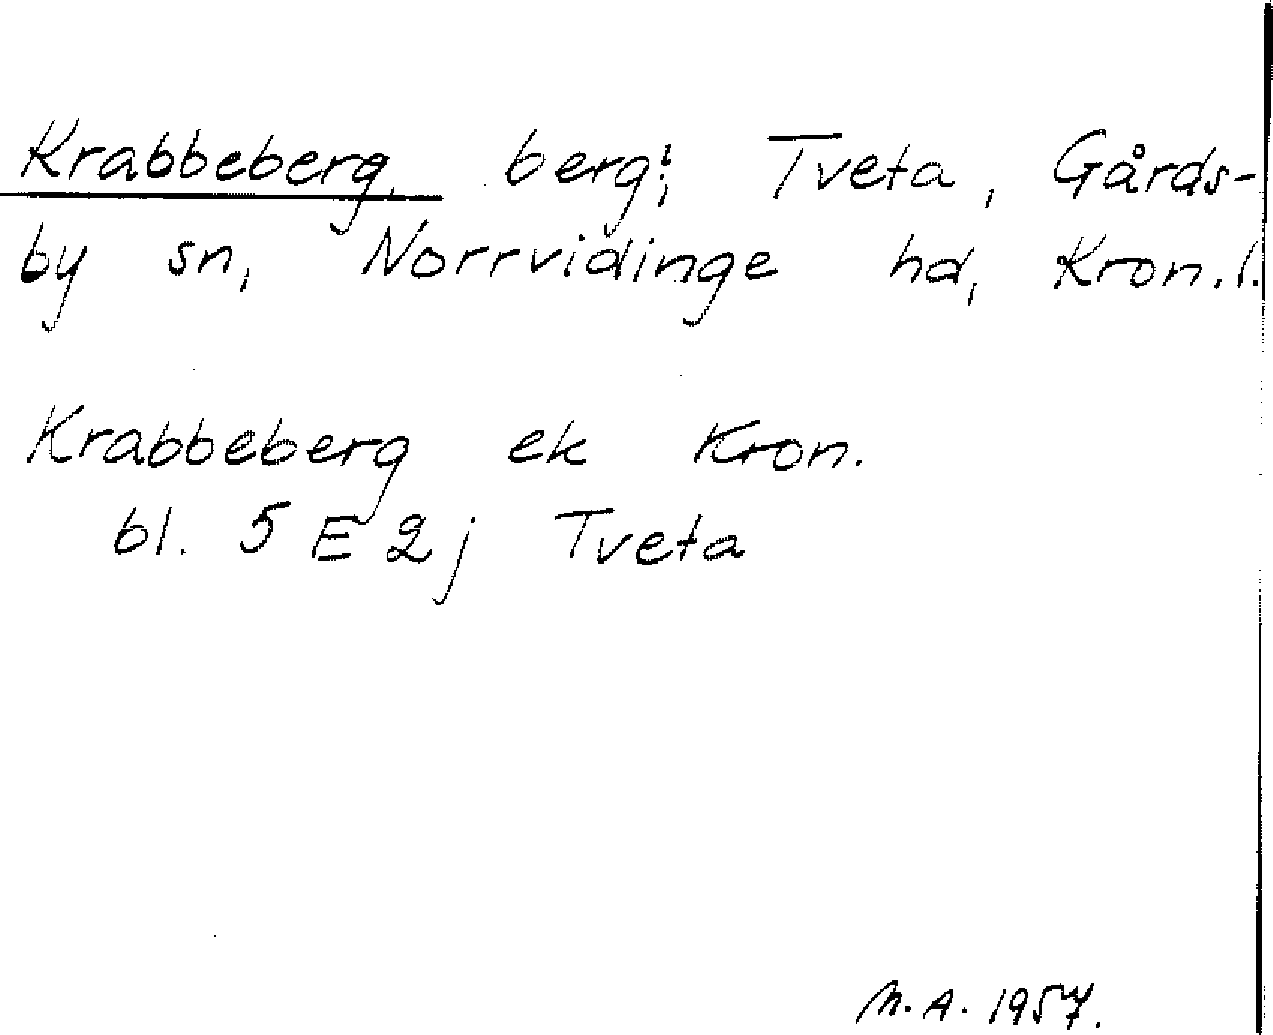 Krabbeberg, berg; Tveta, Gårds-
by sn, Norrvidinge hd, Kron.l.
Krabbeberg ek Kron.
bl. 5 E 2j Tveta
M.A. 1957.